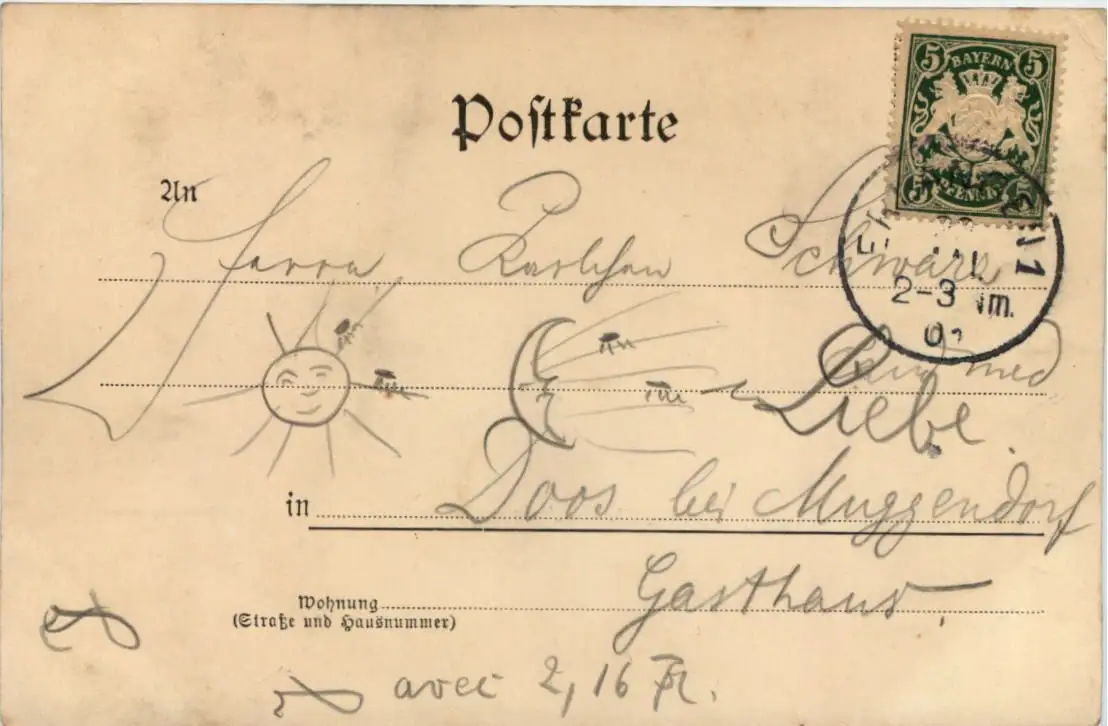 Postkarte
5 BAYERN 5
5 PFENNIG 5
An Herrn Karlchen Schwarz
2-3 Nm.
cand med
Liebe
in Doos bei Muggendorf
Gasthaus
Wohnung
(Straße und Hausnummer)
avec 2,16 Fr.